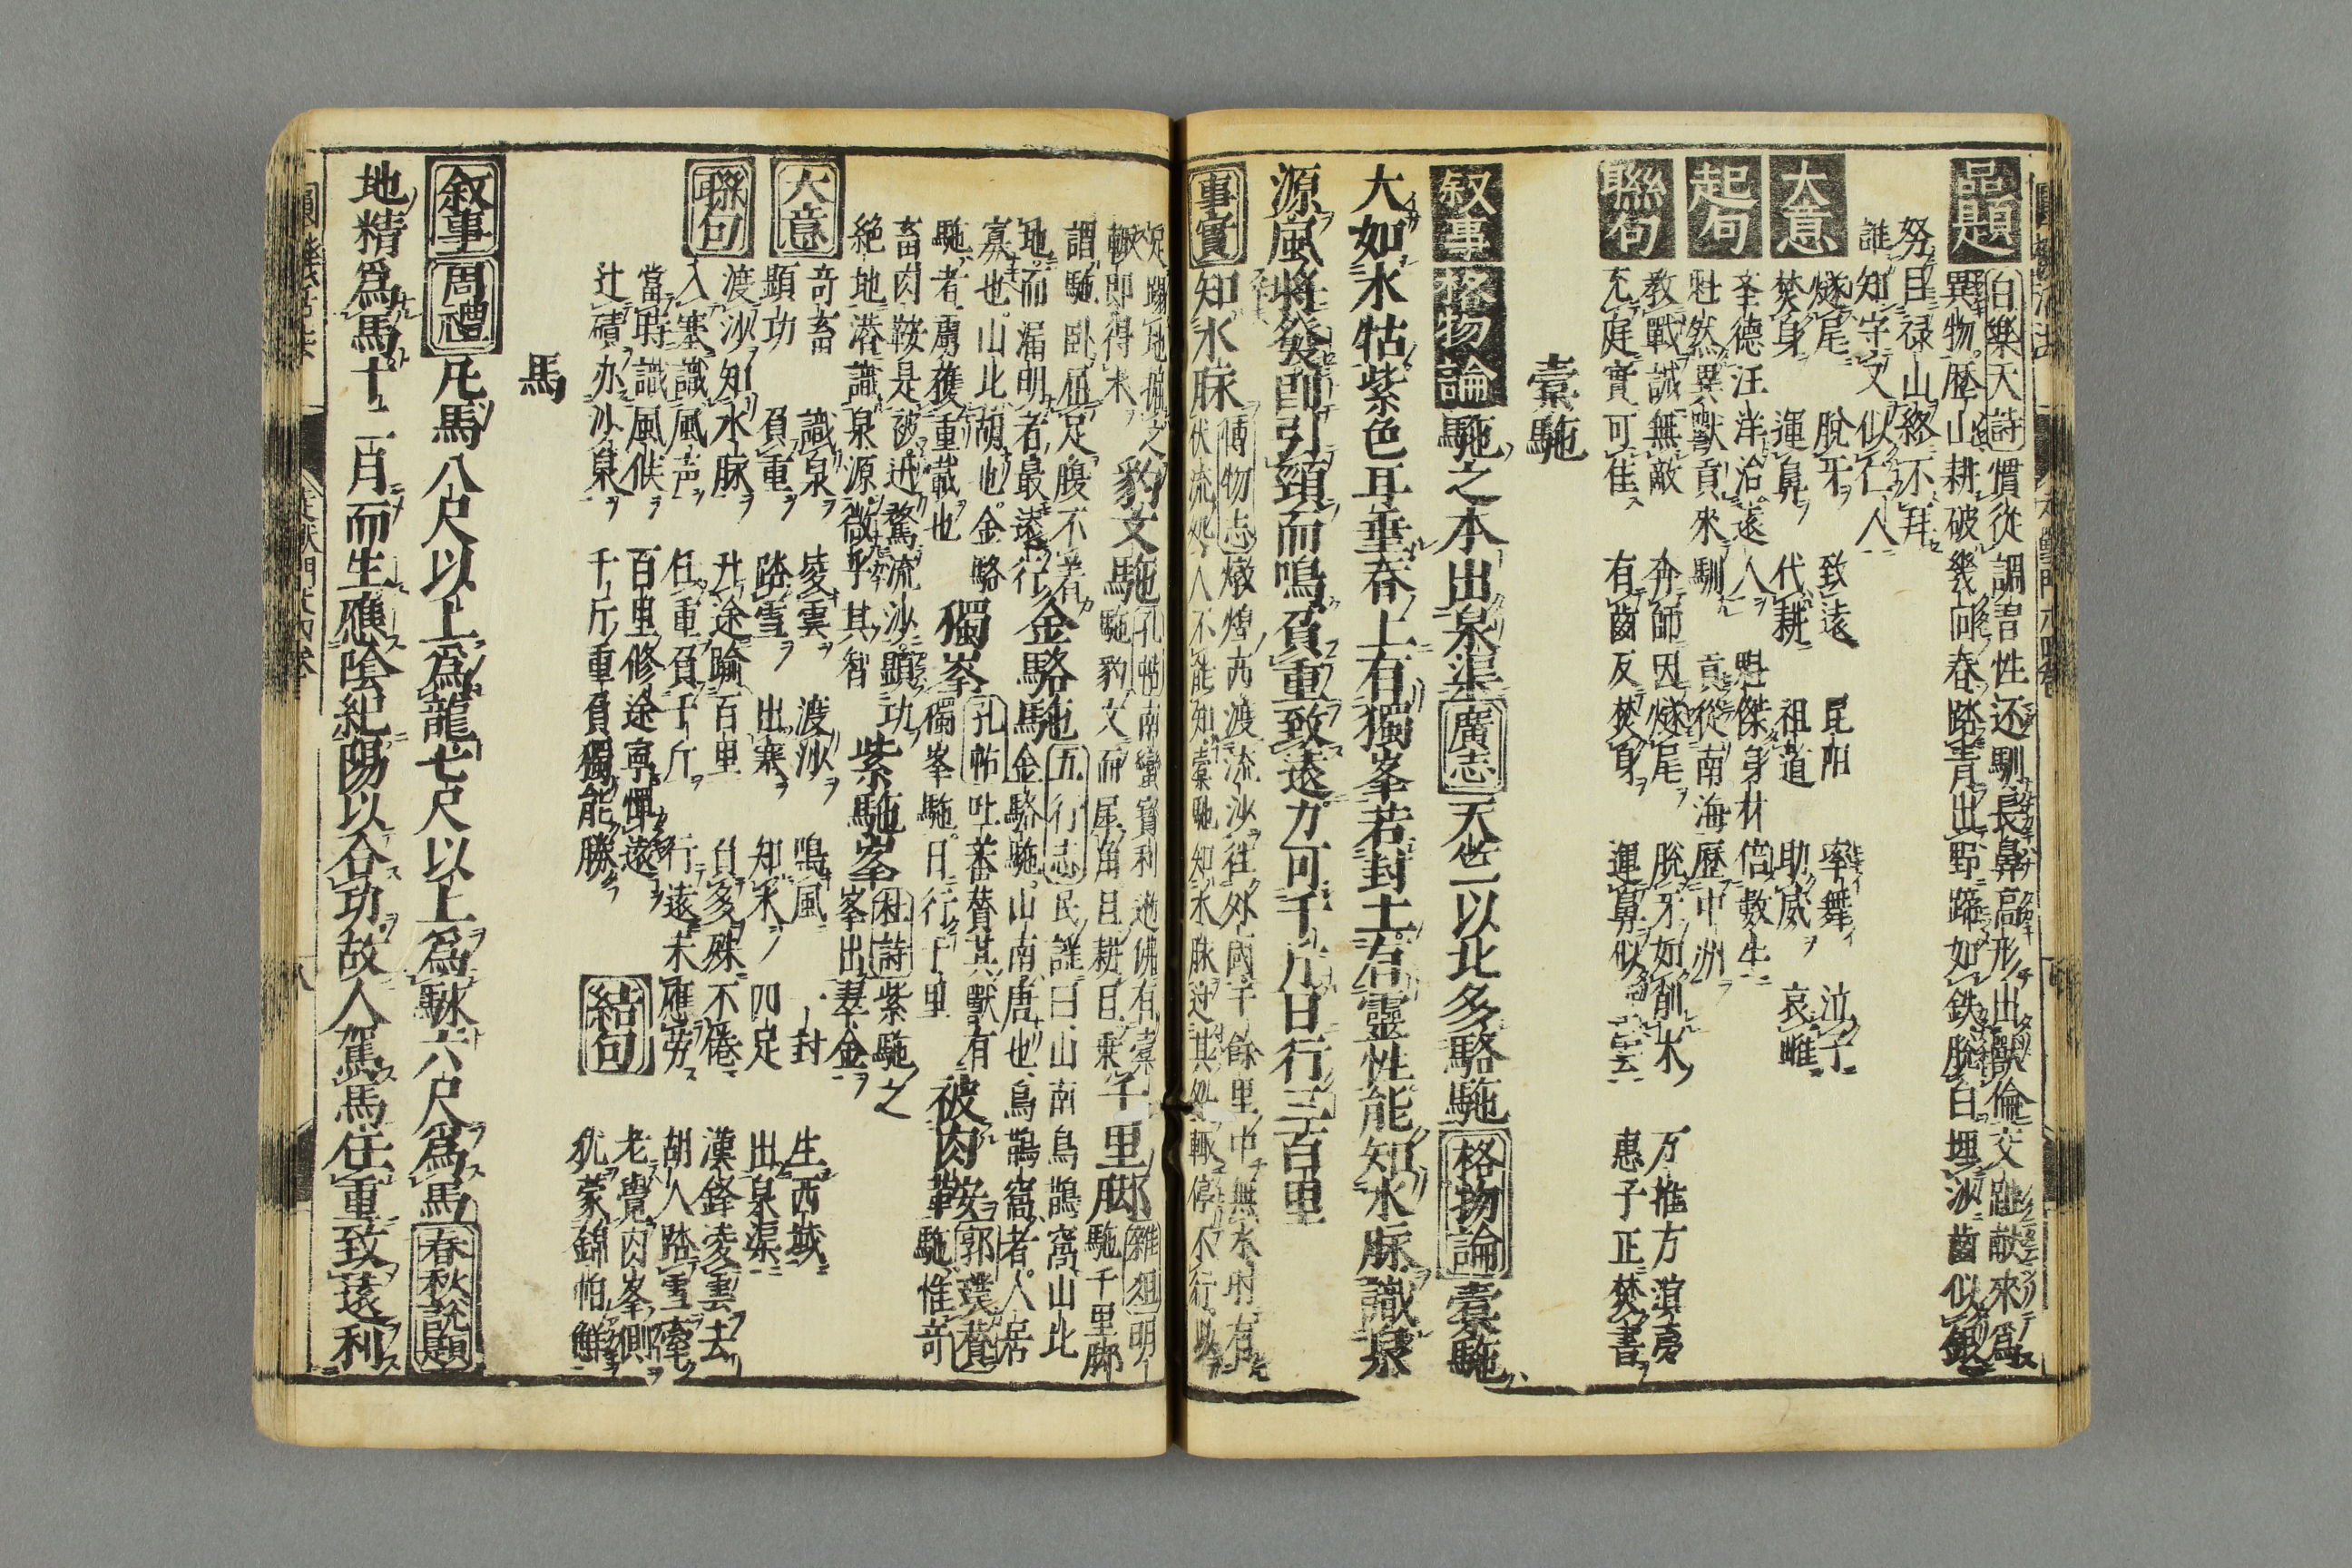 品題
白樂天詩
慣從調習性还馴長鼻高形出獸倫交趾献來爲
異物歴山耕破幾向春踏青出野蹄如鉄脫白埋沙齒似銀
努目禄山終不拜
誰知守义似仁人
大意
燧尾 脫牙 致遠 昆陽 率舞 泣子
焚身 運鼻 代耕 祖道 助威 哀雌
起句
圣德汪洋洽遠人 魁傑身材倍數生
牡然異獸貢來馴 貢從南海歴中洲
聯句
教戰誠無敵 奔師因燧尾 脫牙如削木 万推方
充庭實可佳 有齒反焚身 運鼻似雲 惠子正焚書
橐駞
叙事 格物論 駞之本出泉渠 廣志 天竺以北多駱駞 格物論 橐駞
大如水牯紫色耳垂脊上有獨峯若封土有靈性能知水脉識泉
源風將發即引頸而鳴負重致遠力可千斤日行三百里
事實
知水脉
博物志 燉煌西渡流沙往外國千餘里中無水時有
伏流処人不能知橐駞知水脉过其処輒停不行以
足蹋地掘之
輒即得水
豹文駞
孔帖
駞豹文而犀角且耕且乗
千里脚
雜俎 明
駞千里脚
謂駞卧屈足腹不着
地而漏明者最遠行
金駱駞
五行志 民謡曰山南鳥鵲窩山北
金駱駞山南唐也鳥鵲窩者人居
寡也山北胡也金駱
駞者虜獲重載也
獨峯
孔帖 吐蕃賛其獸有
獨峯駞日行千里
被肉鞍
郭璞賛
駞惟奇
畜肉鞍是被迅驁流沙顕功
絶地潜識泉源微乎其智
紫駞峯
杜詩 紫駞之
峯出翠金
大意
奇畜 識泉 凌雲 渡沙 鳴風 一封 生西域
顕功 負重 踏雪 出塞 知水 四足 出泉渠
聯句
渡沙知水脉 升途踰百里 負多殊不倦 漢鋒凌雲去
入塞識風声 任重負千斤 行遠未應労 胡人踏雪牽
當時識風候 百里修途寧憚遠 結句 老覺肉峯側
辻磧办沙泉 千斤重負獨能勝 犹蒙錦帕鮮
馬
叙事 周禮 凡馬八尺以上爲龍七尺以上爲騋六尺爲馬 春秋說題
地精爲馬十二月而生應陰紀陽以合功故人駕馬任重致遠利